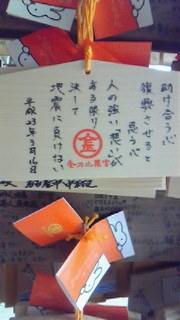 助け合う心
復興させると
思う心
人の強い想いが
ある限り
決して
地震に負けない
平成23年3月16日
金
金刀比羅宮